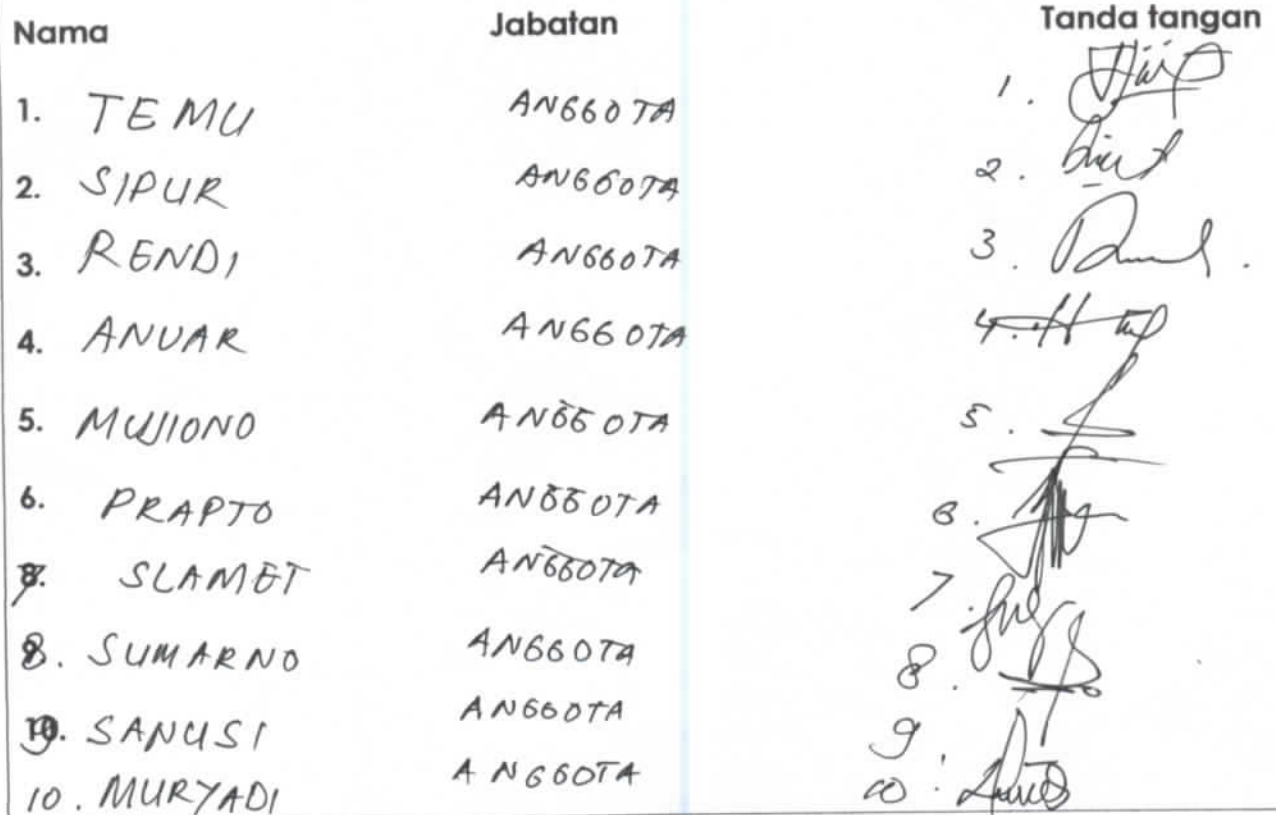 Nama Jabatan Tanda tangan
1. TEMU ANGGOTA 1.
2. SIPUR ANGGOTA 2.
3. RENDI ANGGOTA 3.
4. ANUAR ANGGOTA 4.
5. MUJIONO ANGGOTA 5.
6. PRAPTO ANGGOTA 6.
7. SLAMET ANGGOTA 7.
8. SUMARNO ANGGOTA 8.
9. SANUSI ANGGOTA 9.
10. MURYADI ANGGOTA 10.